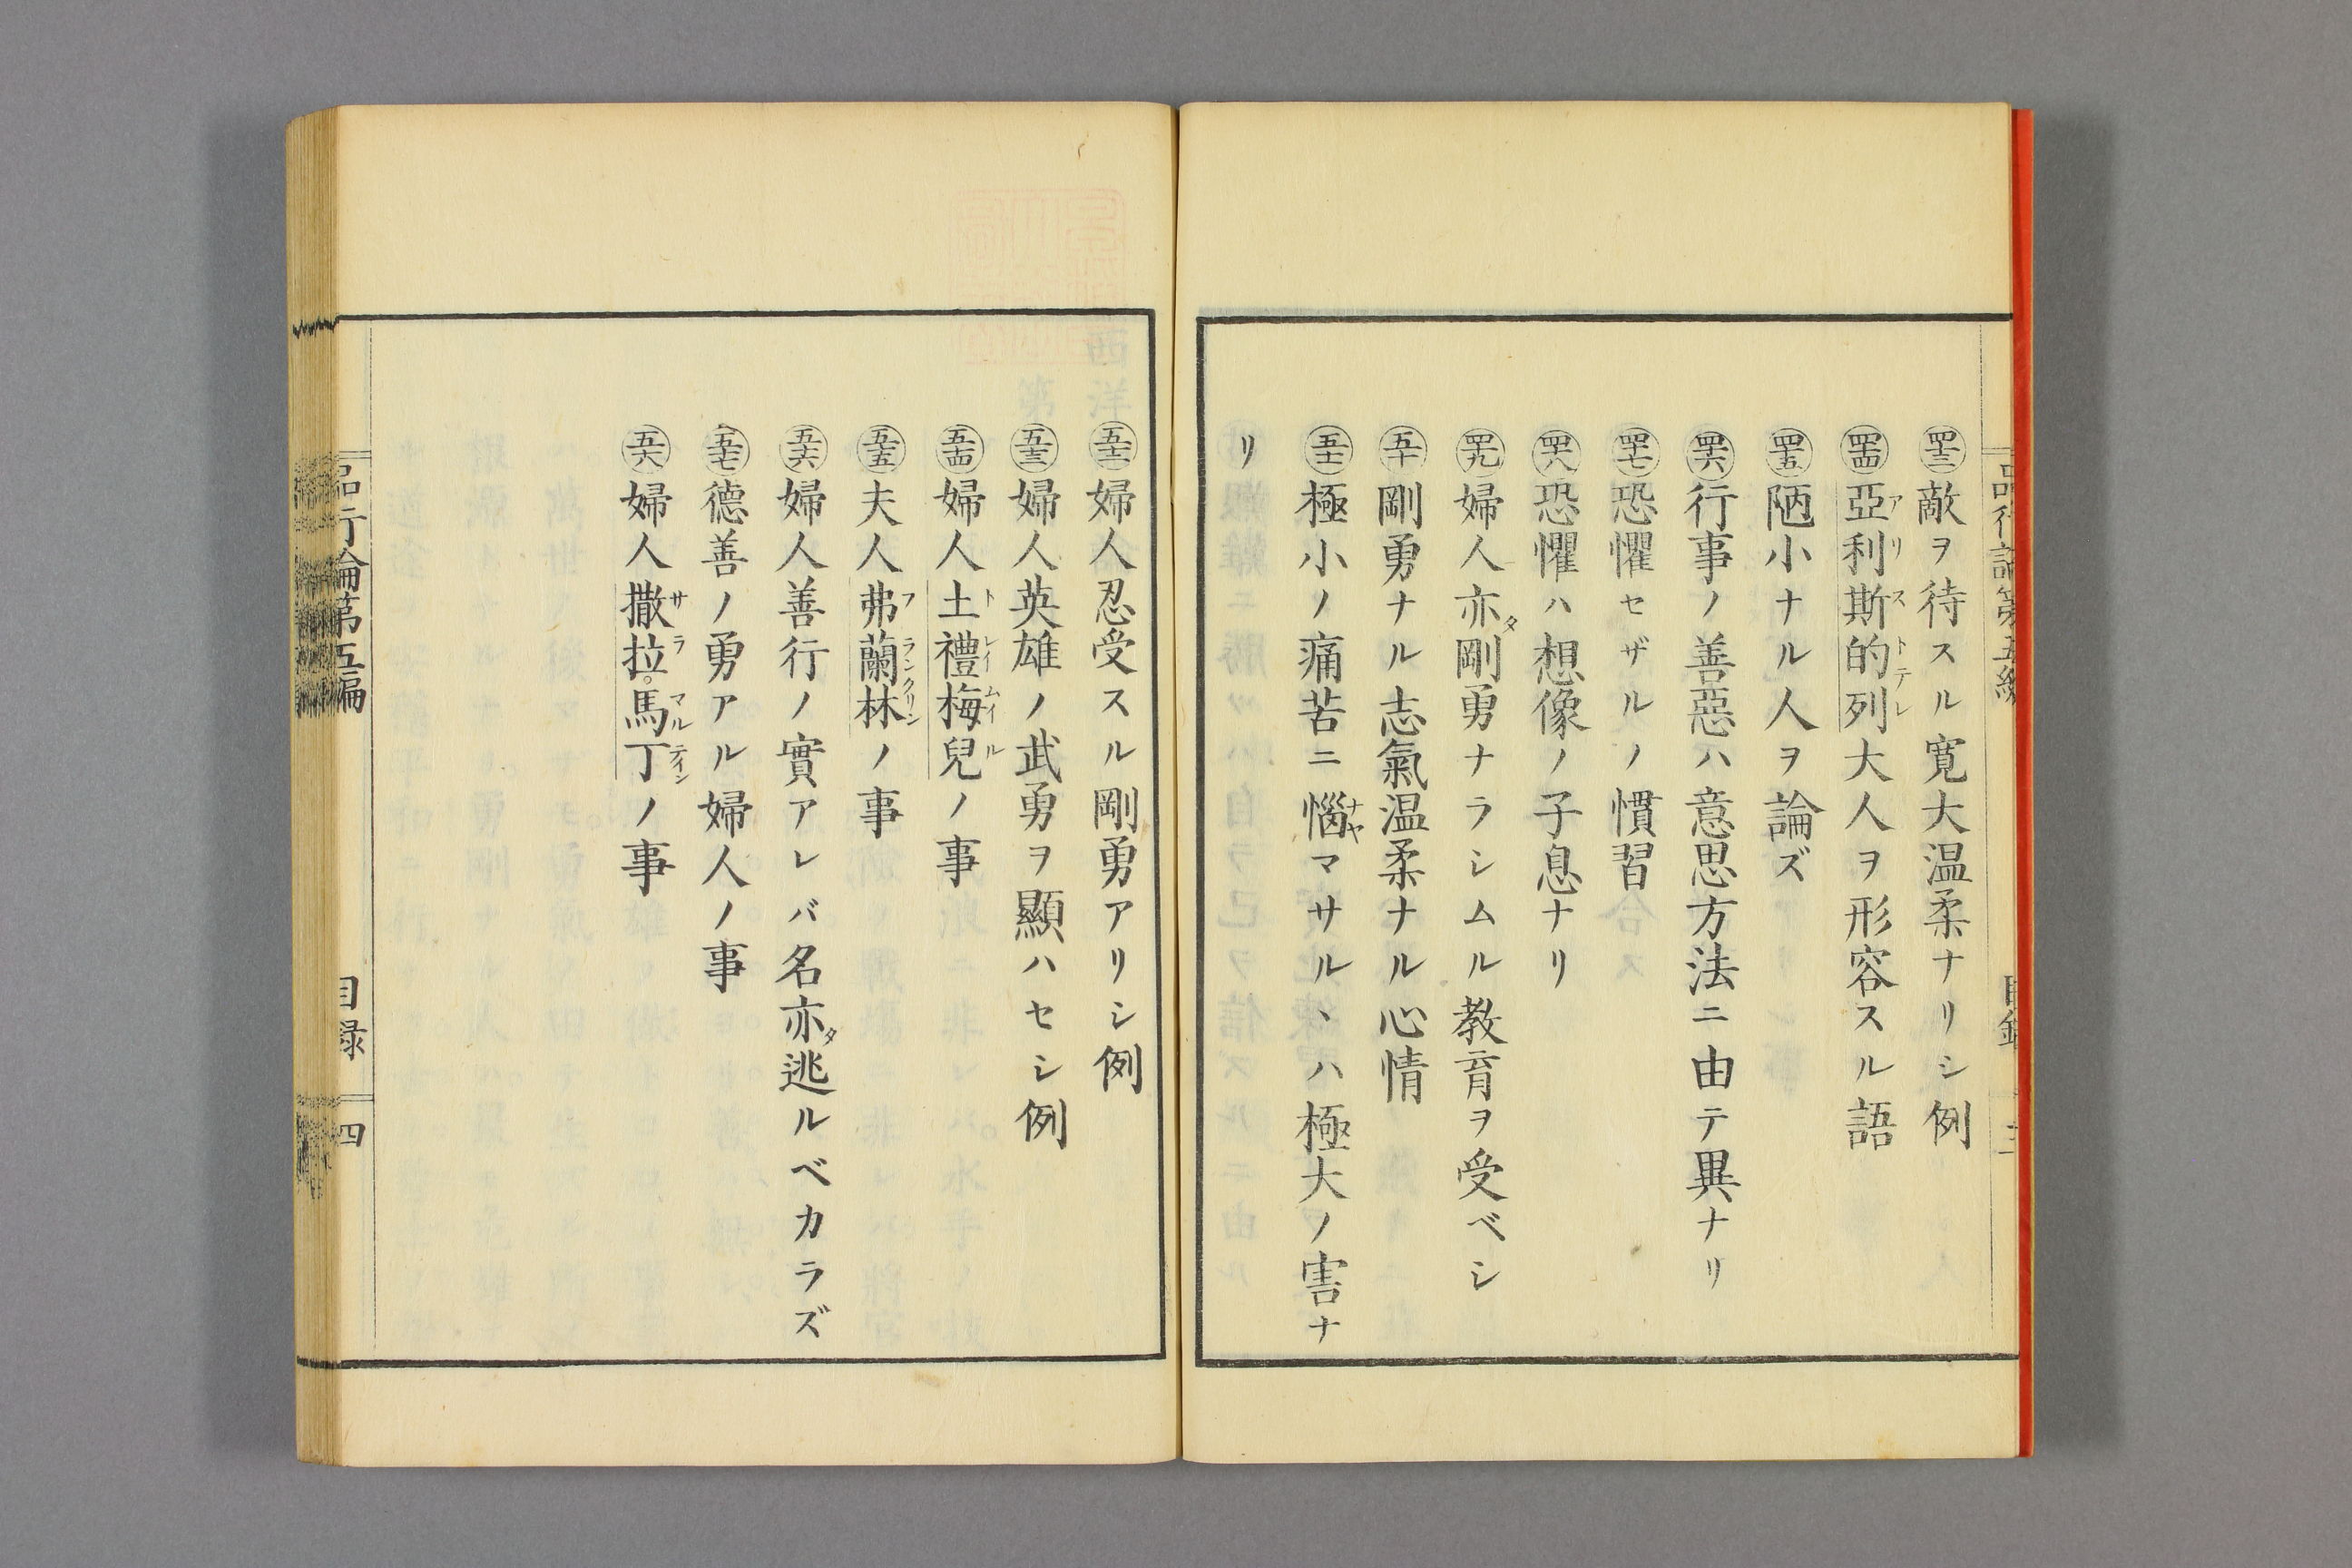 品行論第五編 目録 三
四十三 敵ヲ待スル寛大温柔ナリシ例
四十四 亞利斯的列大人ヲ形容スル語
アリストテレ
四十五 陋小ナル人ヲ論ズ
四十六 行事ノ善惡ハ意思方法ニ由テ異ナリ
四十七 恐懼セザルノ慣習
四十八 恐懼ハ想像ノ子息ナリ
四十九 婦人亦剛勇ナラシムル教育ヲ受ベシ
タ
五十 剛勇ナル志氣温柔ナル心情
五十一 極小ノ痛苦ニ惱マサルヽハ極大ノ害ナ
ナヤ
リ
五十二 婦人忍受スル剛勇アリシ例
五十三 婦人英雄ノ武勇ヲ顯ハセシ例
五十四 婦人土禮梅兒ノ事
トレイムイル
五十五 夫人弗蘭林ノ事
フランクリン
五十六 婦人善行ノ實アレバ名亦逃ルベカラズ
タ
五十七 德善ノ勇アル婦人ノ事
五十八 婦人撒拉。馬丁ノ事
サラマルテイン
品行論第五編 目録 四